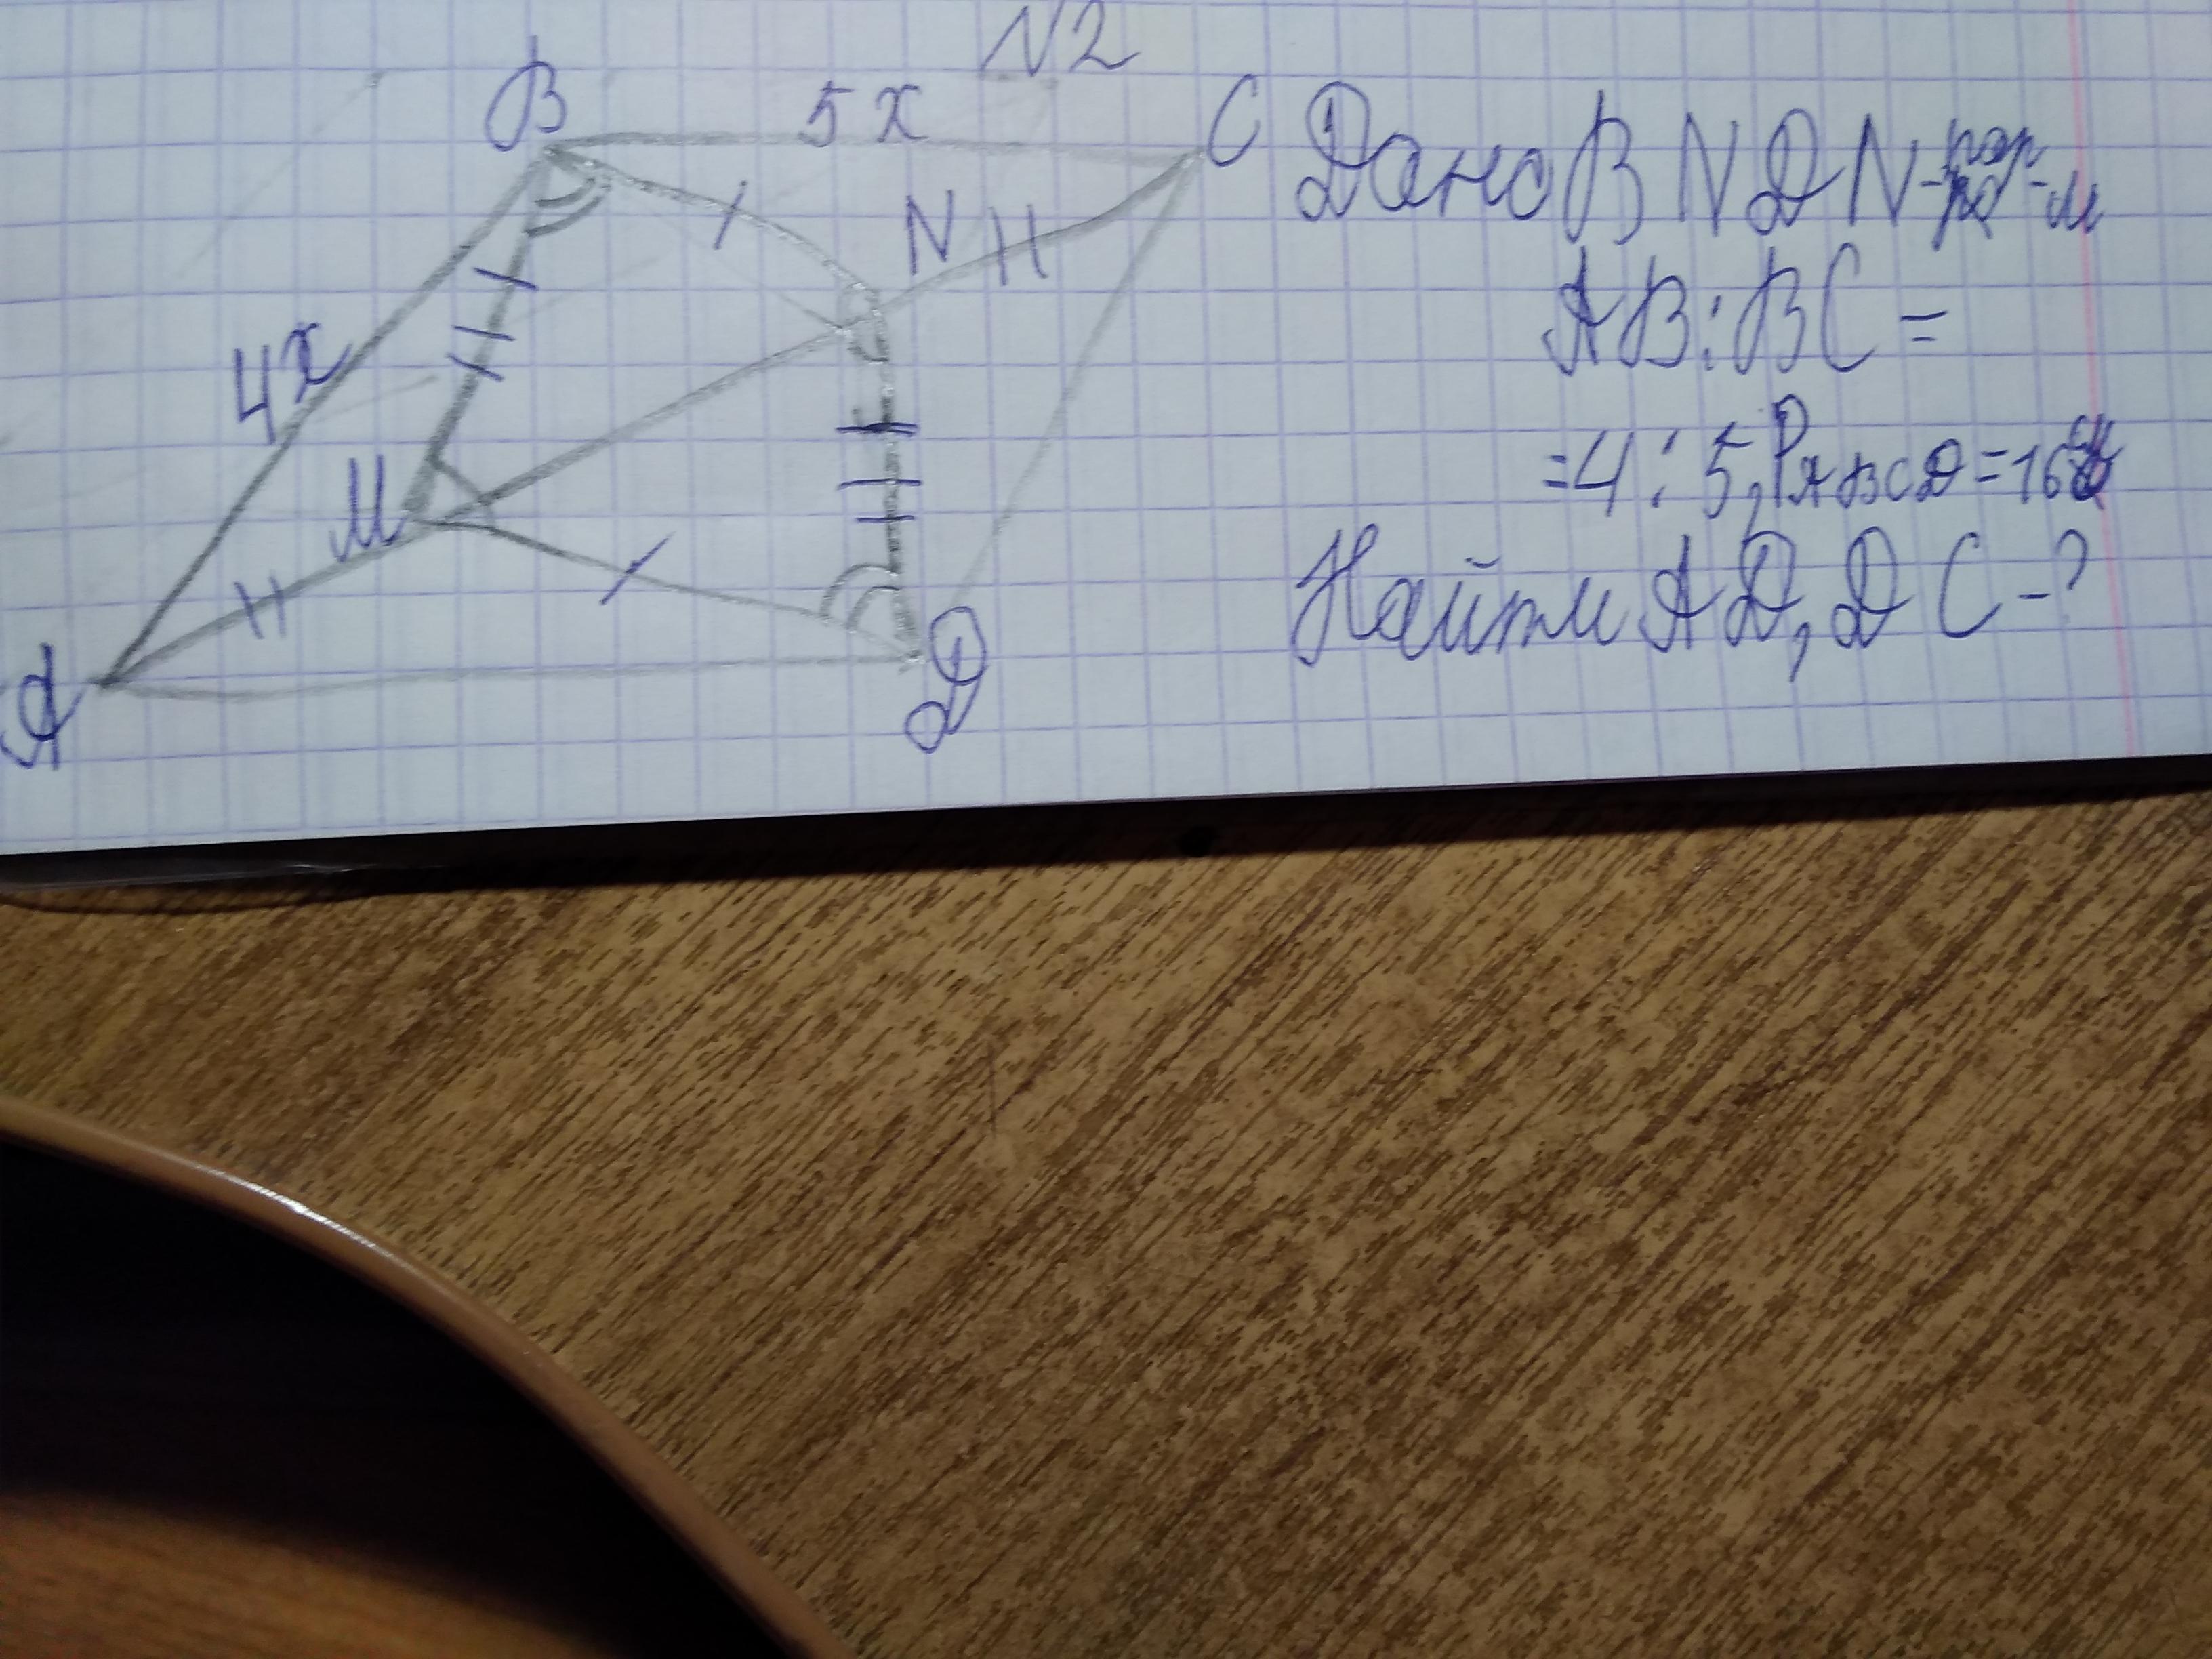 N2
B 5x C
4x N
M
A D
Дано BNDN-пар-м
AB:BC=
=4:5, PABCD=16
Найти AD, DC-?